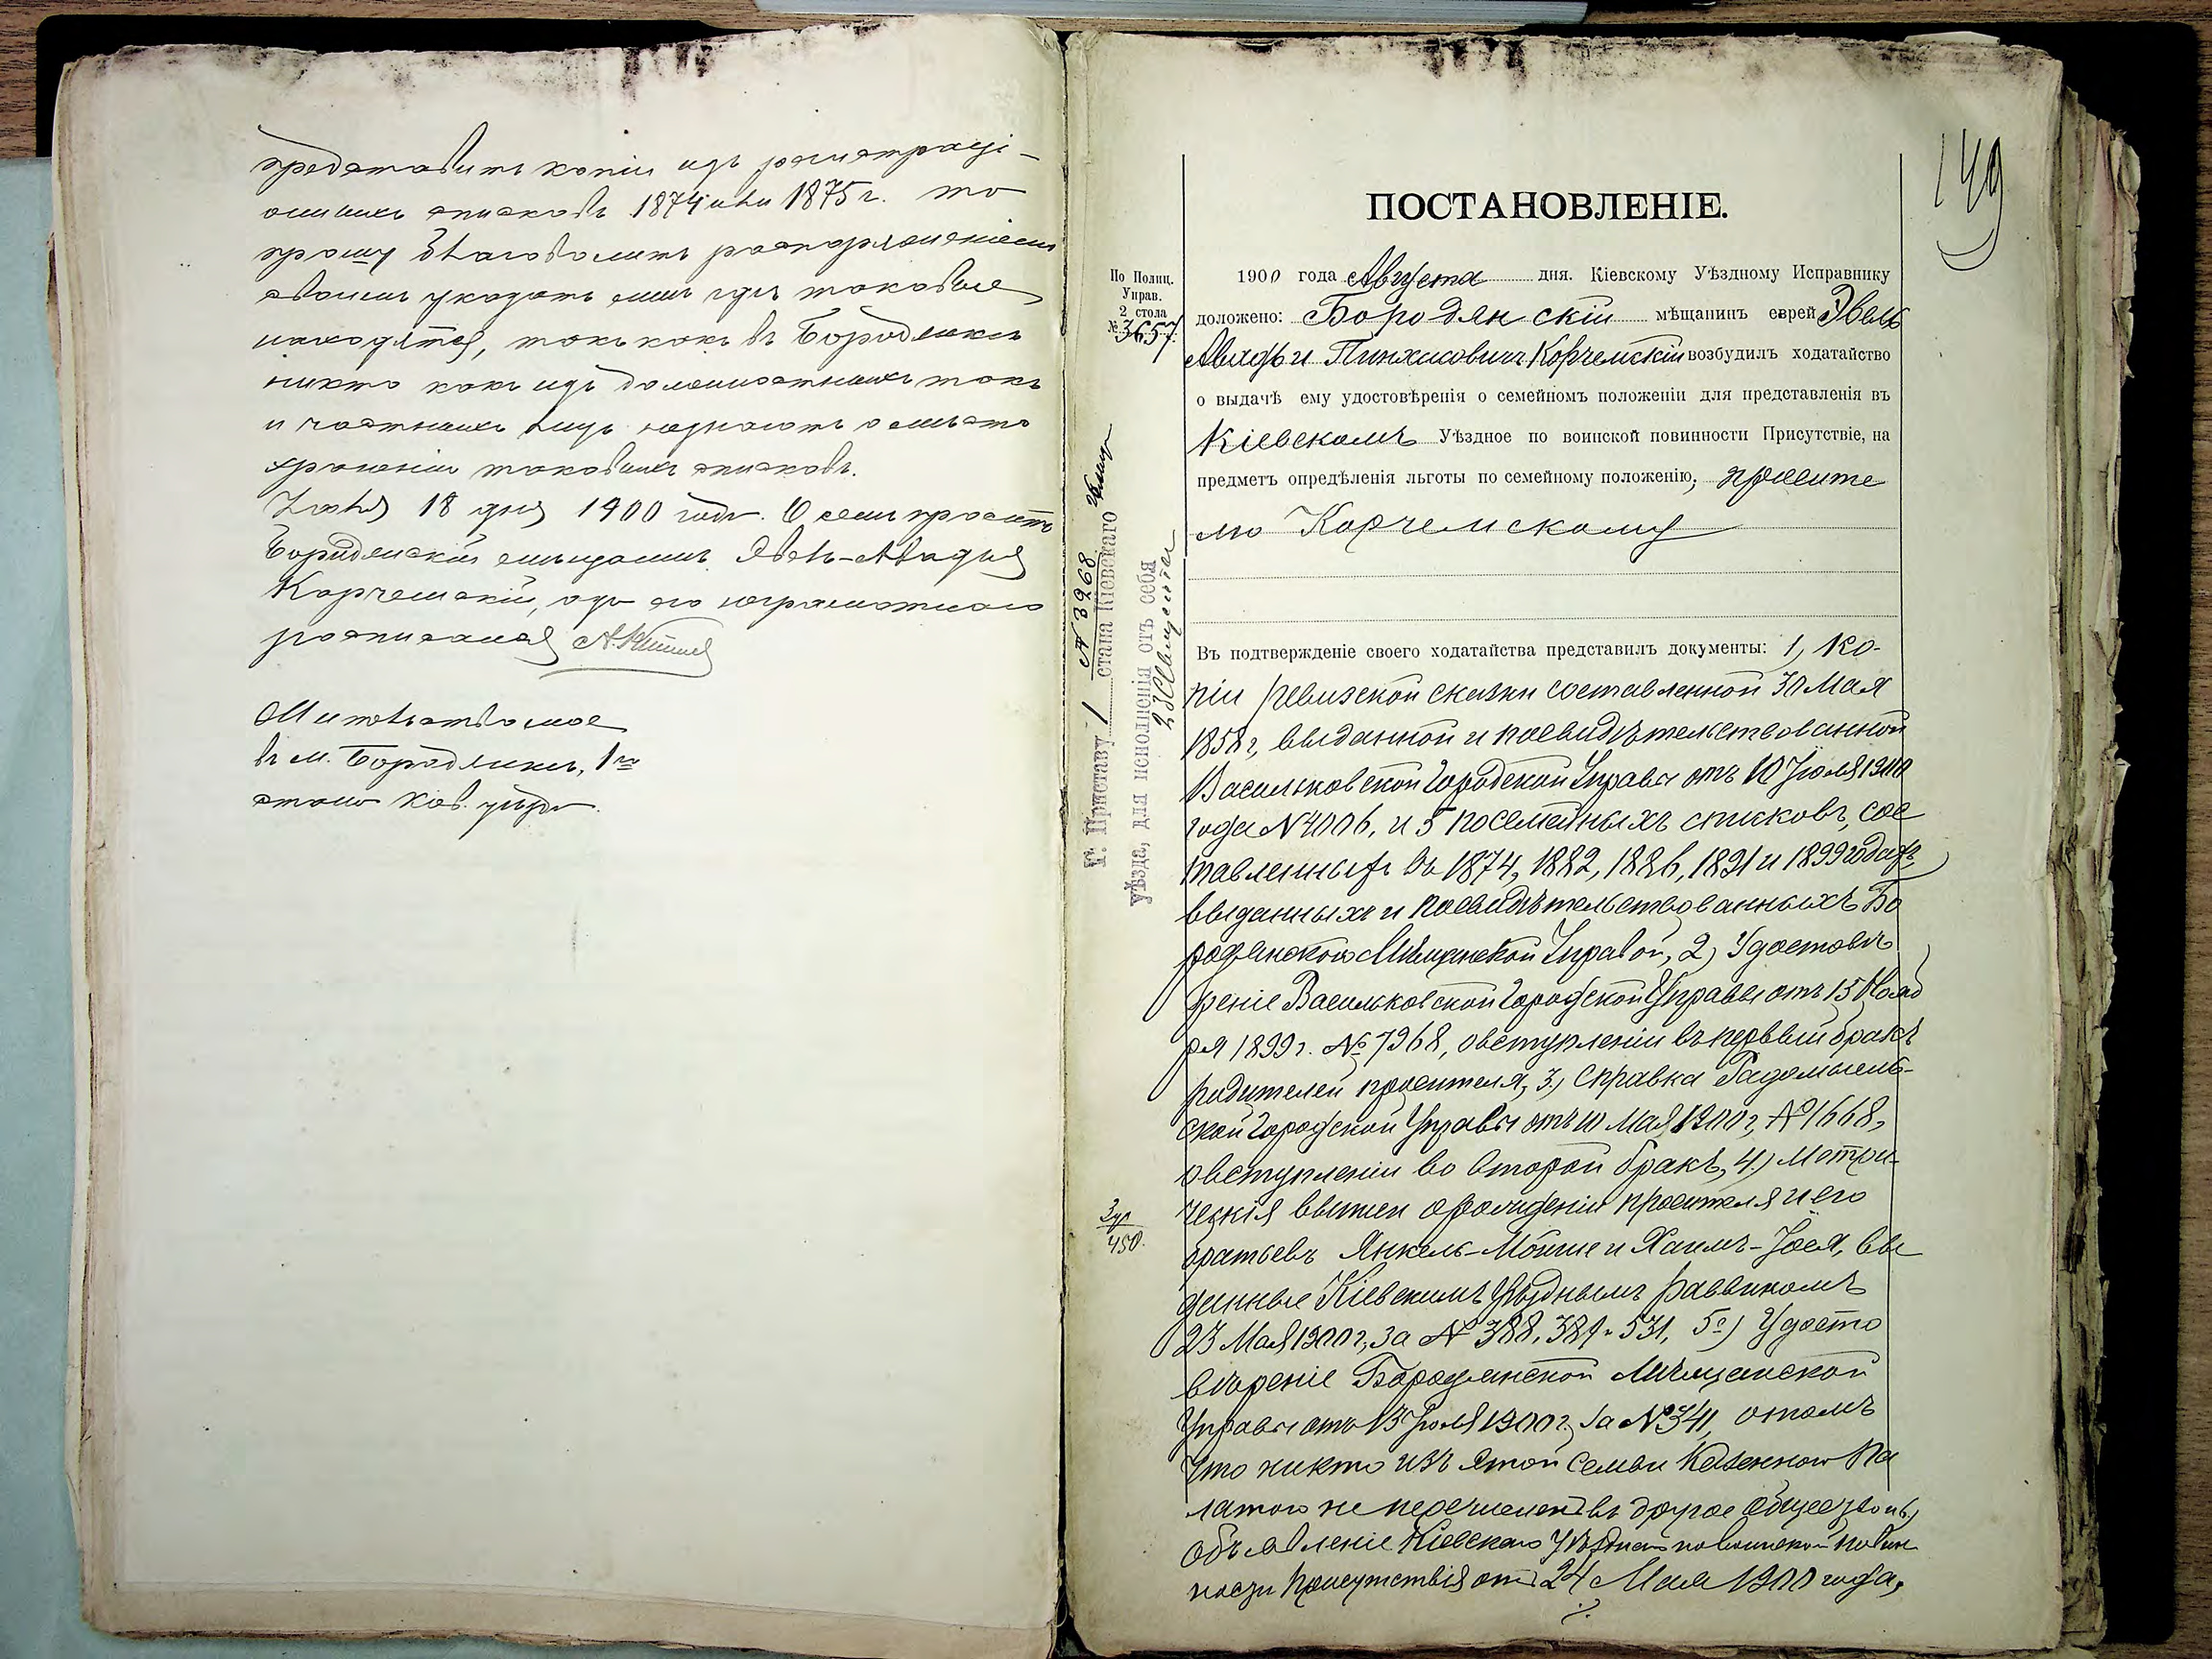 представить копіи изъ регистраці-
онныхъ списковъ 1874 или 1875 г. то
прошу благоволить распоряженіемъ
своимъ указать мнѣ гдѣ таковые
находятся, такъ какъ въ Бородянкѣ
никто какъ изъ должностныхъ такъ
и частныхъ лицъ незнаютъ о мѣстѣ
храненія таковыхъ списковъ.
Іюля 18 дня 1900 года. О семъ проситъ
Бородянскій мѣщанинъ Эвель-Авадья
Корчемскій, а за его неграмотного
росписался
Жительство мое
въ м. Бородянкѣ, 1го
стана Кіев. уѣзда.
149
ПОСТАНОВЛЕНІЕ.
По Полиц.
Управ.
2 стола
№ 3657
1900 года Августа дня. Кіевскому Уѣздному Исправнику
доложено: Бородянскій мѣщанинъ еврей Эвель
Авадья Пинхасовичъ Корчемскій возбудилъ ходатайство
о выдачѣ ему удостовѣренія о семейномъ положеніи для представленія въ
Кіевскомъ Уѣздное по воинской повинности Присутствіе, на
предметъ опредѣленія льготы по семейному положенію, просите
лю Корчемскому
№ 3968
Г. Приставу 1 стана Кіевскаго
уѣзда, для исполненія отъ себя
23 Сентября
Въ подтвержденіе своего ходатайства представилъ документы: 1, Ко-
піи ревизской сказки составленной 30 Мая
1858 г, выданной и посвидѣтельствованной
Васильковской Городской Управы отъ 10 Іюля 1900
года № 4006, и 5 посемейныхъ списковъ, сос
тавленныхъ въ 1874, 1882, 1886, 1891 и 1899 годахъ,
выданныхъ и посвидѣтельствованныхъ Бо
родянскою Мѣщанской Управой, 2) Удостовѣ
реніе Васильковской Городской Управы отъ 15 Нояб
ря 1899 г. № 7968, о вступленіи въ первый бракъ
родителей просителя, 3,) Справка Радомысль-
ской Городской Управы отъ 10 Мая 1900 г, № 1668,
о вступленіи во второй бракъ, 4,) Метри-
ческія выписи о рожденіи просителя и его
братьевъ Янкель-Мойше и Хаимъ-Іося, вы
данные Кіевскимъ Уѣзднымъ раввиномъ
23 Мая 1900 г, за № 388, 389 и 531, 5,) Удосто
вѣреніе Бородянской Мѣщанской
Управы отъ 13 Іюля 1900 г, за № 341, о томъ
что никто изъ этой семьи Казенною Па
латою не перечисленъ въ другое общество и 6)
Объявленіе Кіевскаго Уѣзднаго по воинской повин
ности присутствія отъ 24 Мая 1900 года,
450.